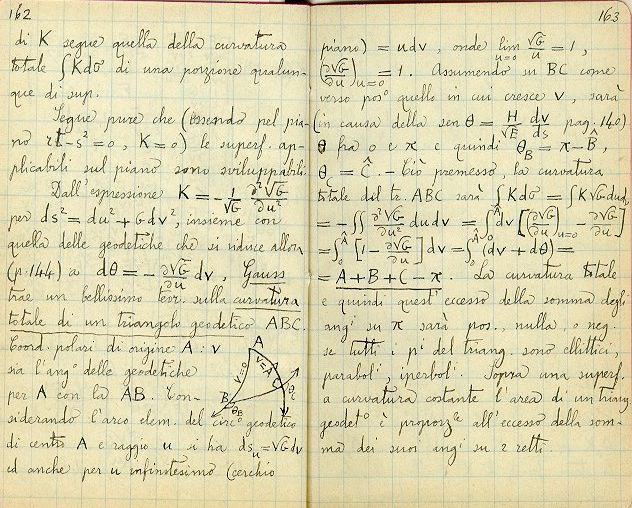 162
di K segue quella della curvatura
totale ∫Kdσ di una porzione qualun-
que di sup.
Segue pure che (essendo nel pia-
no rt-s²=0, K=0) le superf. ap-
plicabili sul piano sono sviluppabili.
Dall'espressione K = -1/√G ∂²√G/∂u²
per ds² = du² + Gdv², insieme con
quella delle geodetiche che si riduce allora
(p.144) a dθ = -∂√G/∂u dv, Gauss
trae un bellissimo teor. sulla curvatura
totale di un triangolo geodetico ABC.
Coord. polari di origine A: v
sia l'ang° delle geodetiche
per A con la AB. Con-
siderando l'arco elem. del circ° geodetico
di centro A e raggio u si ha ds_u = √G dv
ed anche per u infinitesimo (cerchio
A
v=0
v=A
B
θ_B
C
θ_C
163
piano) = udv, onde lim_{u=0} √G/u = 1,
(∂√G/∂u)_{u=0} = 1. Assumendo su BC come
verso pos° quello in cui cresce v, sarà
(in causa della sen θ = H/√E dv/ds pag. 140)
θ fra 0 e π e quindi θ_B = π - B̂,
θ_C = Ĉ. Ciò premesso, la curvatura
totale del tr. ABC sarà ∫Kdσ = ∫K√G dudv
= -∫∫ ∂²√G/∂u² dudv = ∫₀^Â dv [(∂√G/∂u)_{u=0} - ∂√G/∂u]
= ∫₀^Â [1 - ∂√G/∂u] dv = ∫₀^Â (dv + dθ) =
= A + B + C - π. La curvatura totale
e quindi quest'eccesso della somma degli
angi su π sarà pos., nulla, o neg.
se tutti i pi del triang. sono ellittici,
paraboli, iperboli. Sopra una superf.
a curvatura costante l'area di un triang.
geodet° è proporzle all'eccesso della som-
ma dei suoi angi su 2 retti.